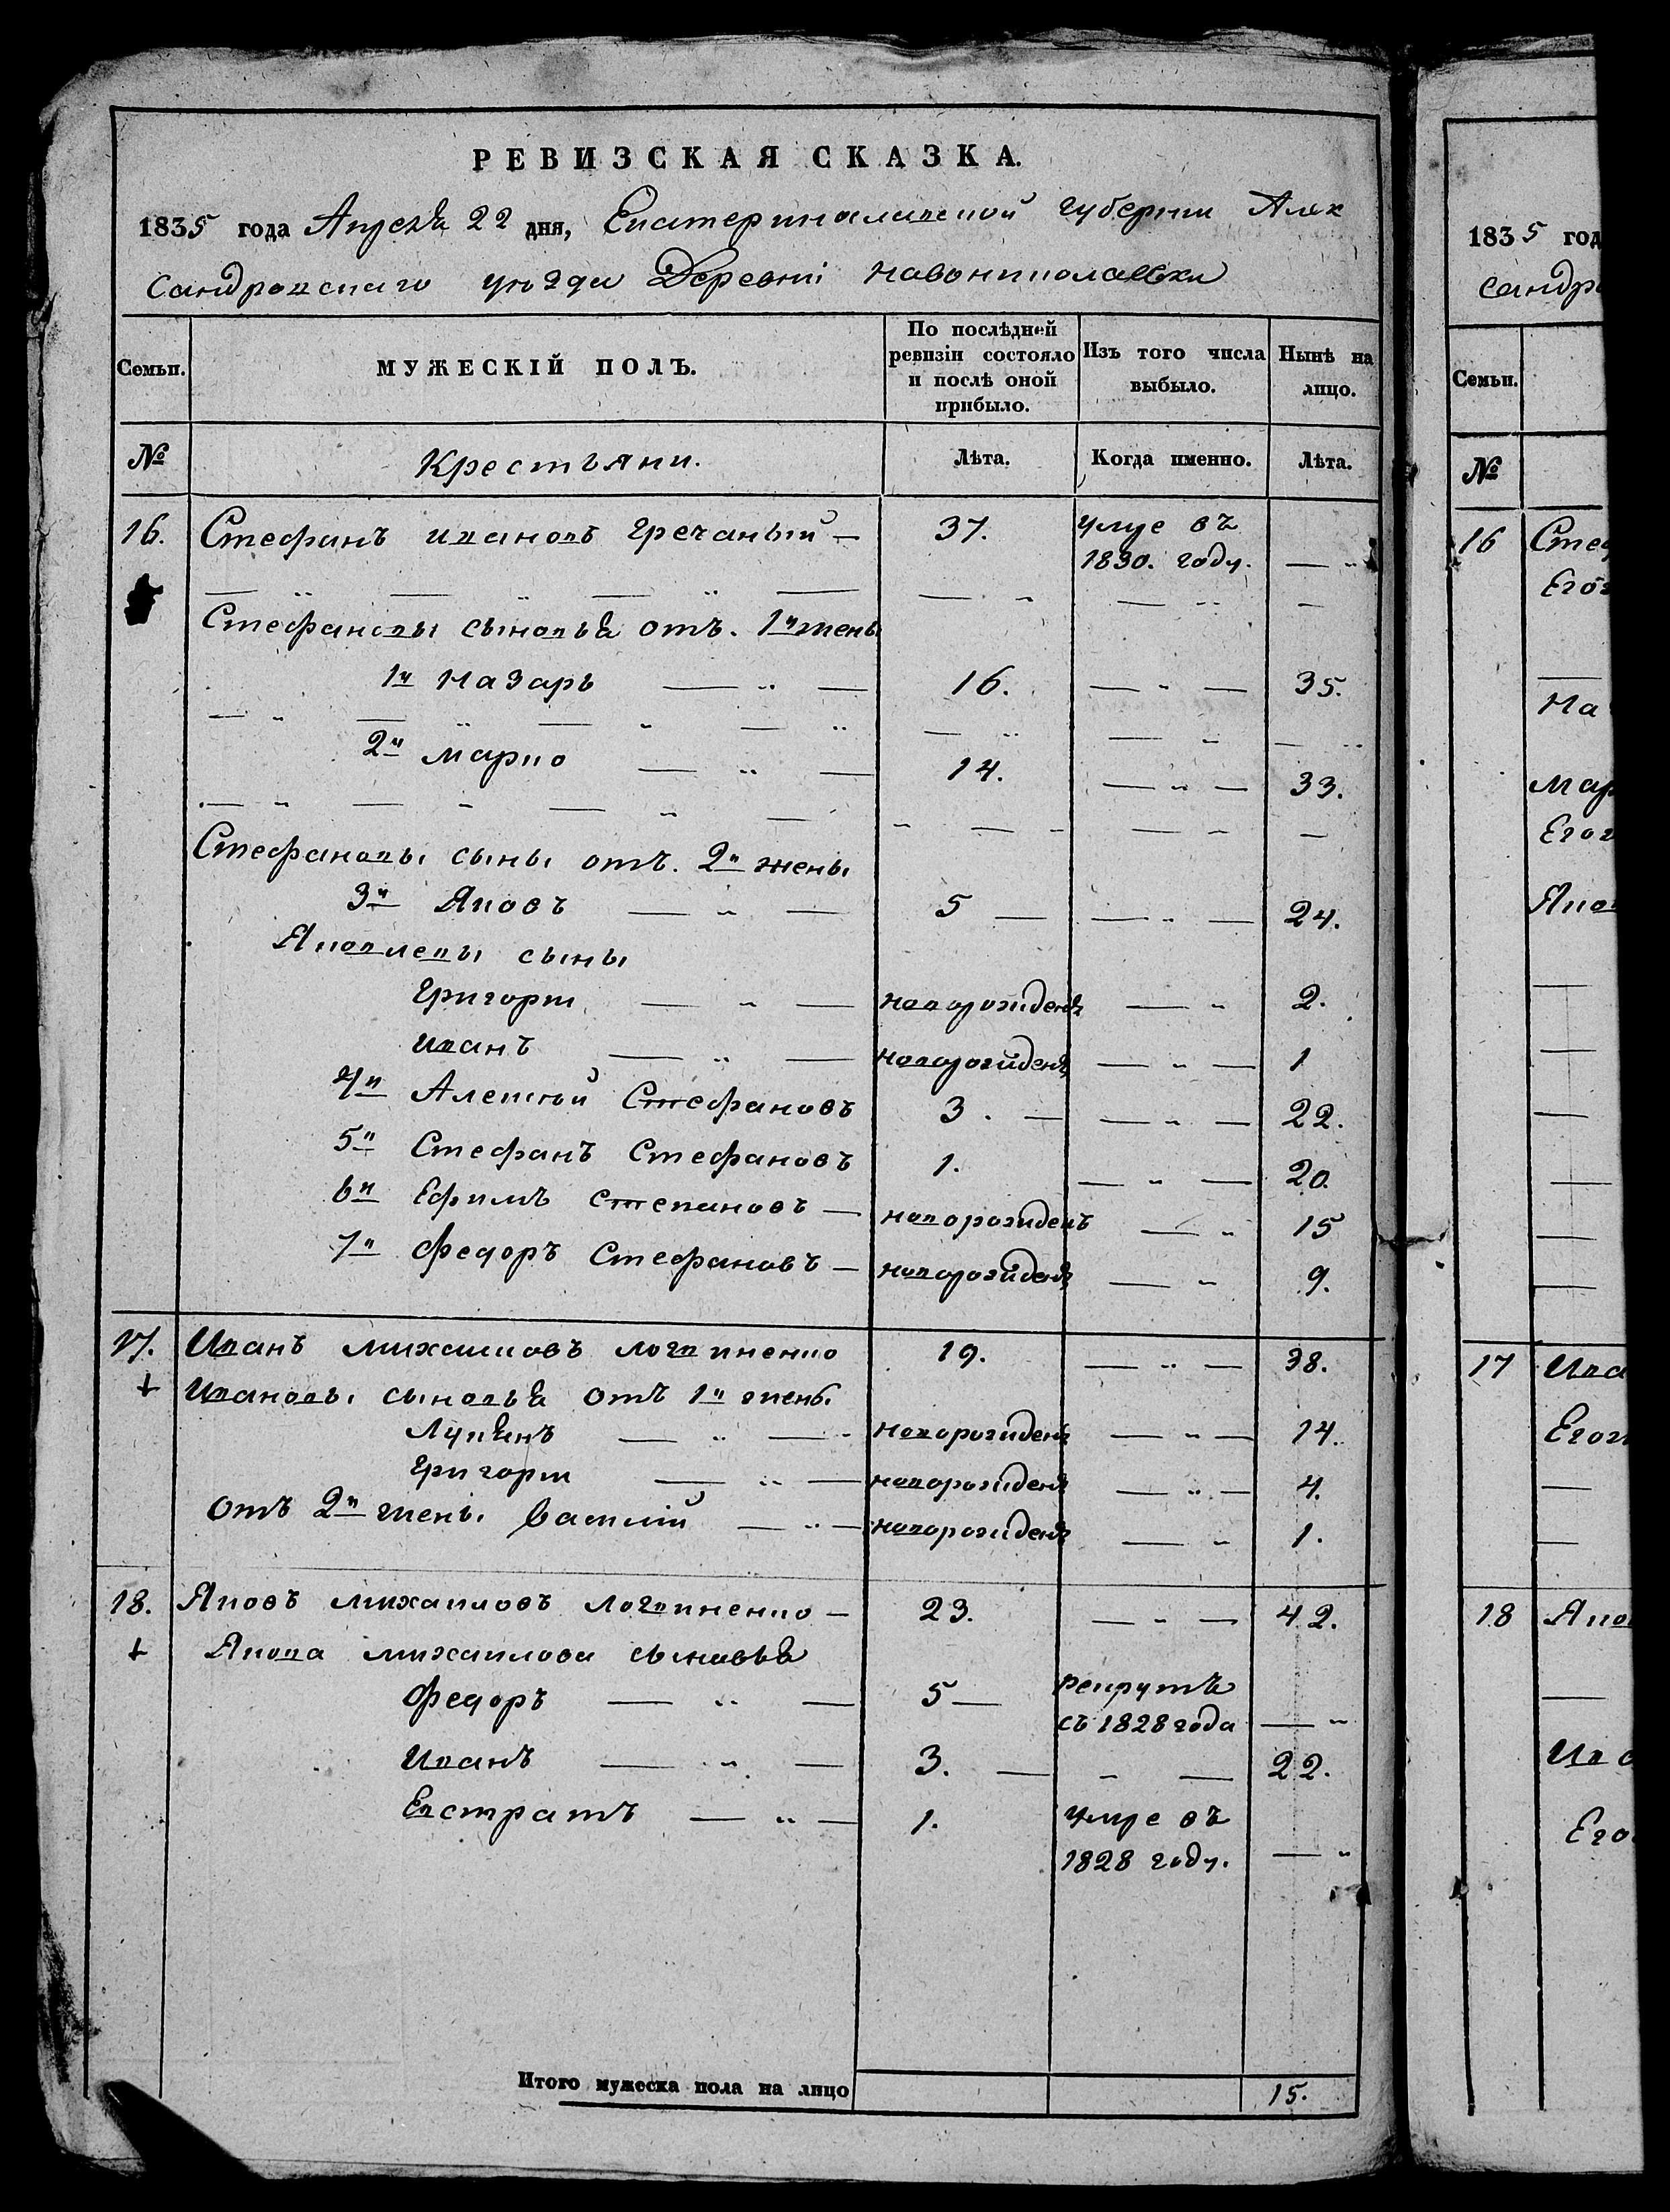 РЕВИЗСКАЯ СКАЗКА.
1835 года Апреля 22 дня, Екатеринославской губернии Алек
сандровскаго уезда Деревни Новониколаевки
Семьи. МУЖЕСКІЙ ПОЛЪ. По послѣдней ревизіи состояло и послѣ оной прибыло. Изъ того числа выбыло. Нынѣ на лицо.
№ Крестьяни. Лѣта. Когда именно. Лѣта.
16. Стефанъ Ивановъ Гречаный — 37. умре въ
1830. году. — "
Стефановы сыновья отъ. 1й жены
1й Назаръ — " — 16. — " — 35.
2й Марко — " — 14. — " — 33.
Стефановы сыны отъ. 2й жены
3й Яковъ — " — 5 — — " — 24.
Яковлевы сыны
Григорій — " — новорожденъ — " 2.
Иванъ — " — новорожденъ — " — 1
4й Алексѣй Стефановъ 3. — — " — 22.
5й Стефанъ Стефановъ 1. — " — 20.
6й Ефимъ Степановъ — новорожденъ — " 15
7й Федоръ Стефановъ — новорожденъ — " 9.
17. Иванъ Михаиловъ Логвиненко 19. — " — 38.
Ивановы сыновья отъ 1й жены.
Лукянъ — " — новорожденъ — " — 14.
Григорій — " — новорожденъ — " — 4.
отъ 2й жены Василій — " — новорожденъ — " 1.
18. Яковъ Михаиловъ Логвиненко — 23. — " — 42.
Якова Михаилова сыновья
Федоръ — " — 5 — рекрутъ
съ 1828 года — "
Иванъ — " — 3. — " — 22.
Евстратъ — " — 1. умре въ
1828 году. — "
Итого мужеска пола на лицо 15.
1835 год
сандро
Семьи.
№
16 Стеф
Его
На
Мар
Его
Яко
17 Ива
Его
18 Яко
Ива
Его